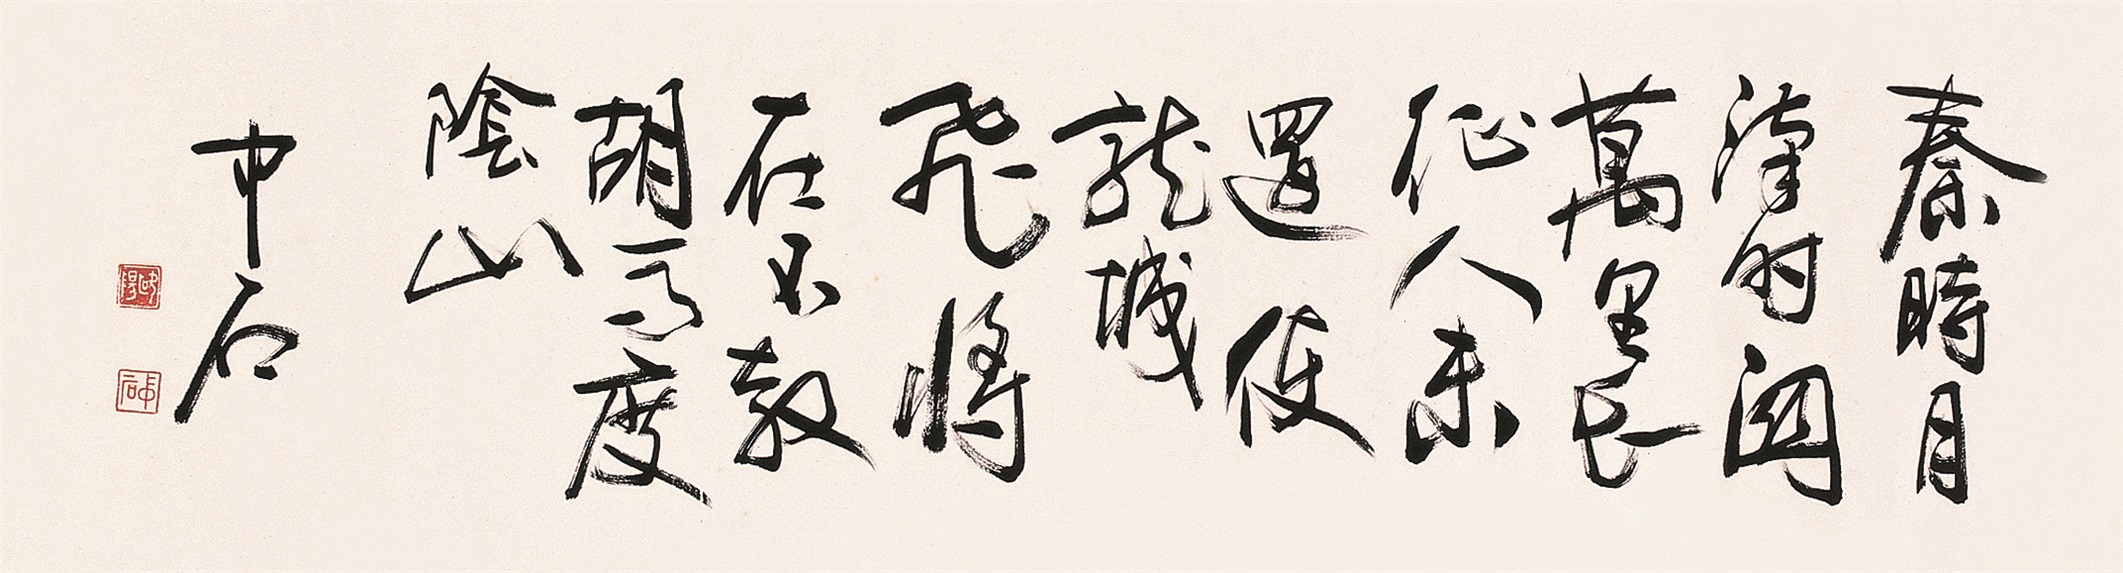 秦時月
漢时關
萬里長
征人未
還使
龍城
飛將
在不教
胡馬度
陰山
中石
歐陽
中石